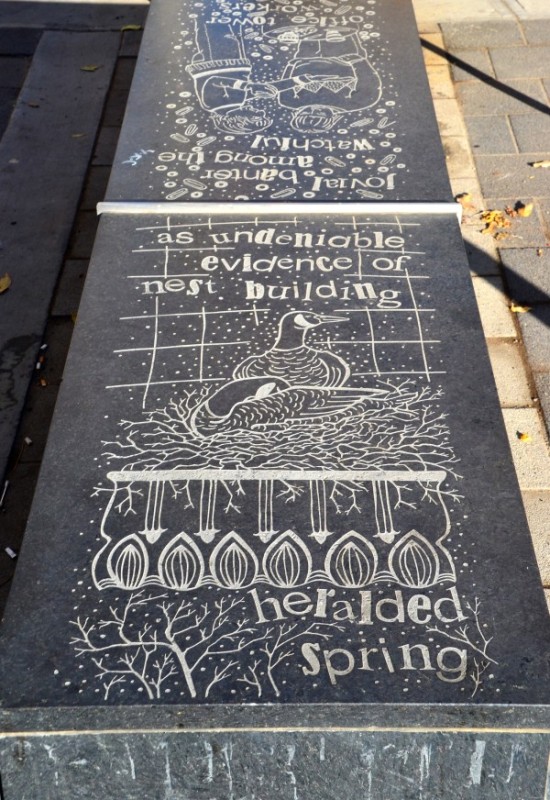 jovial banter
among the
watchful
office tower
workers
as undeniable
evidence of
nest building
heralded
spring